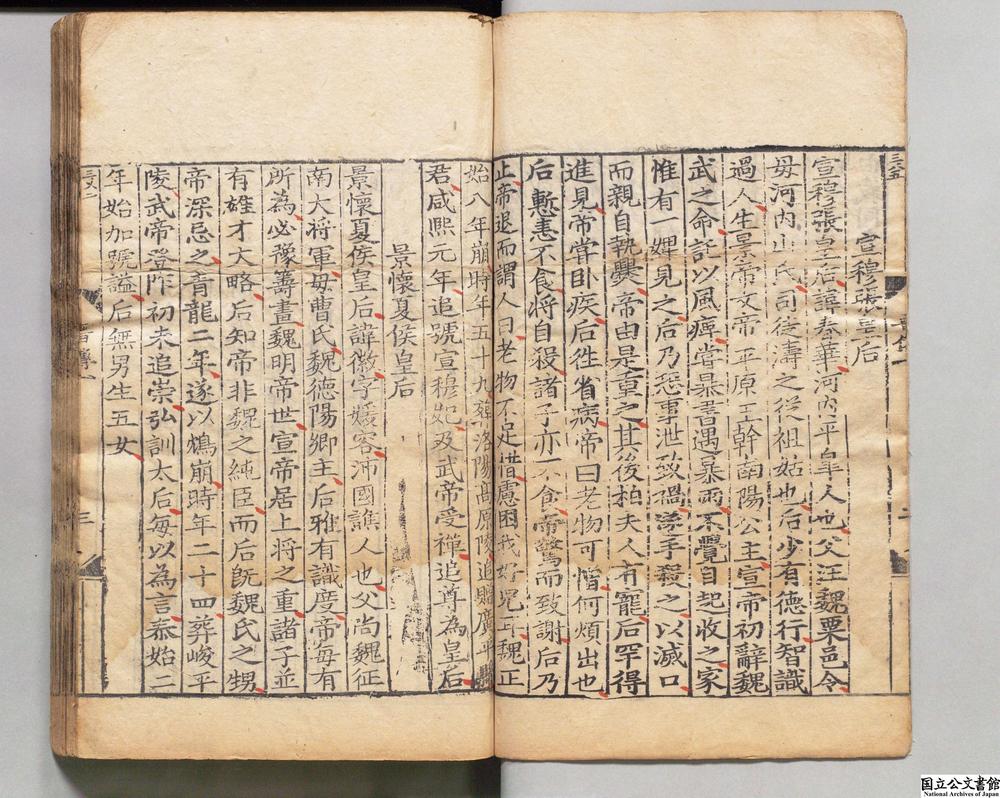 宣穆張皇后
宣穆張皇后諱春華河內平皐人也父汪魏粟邑令
母河內山氏司徒濤之從祖姑也后少有德行智識
過人生景帝文帝平原王幹南陽公主宣帝初辭魏
武之命託以風痺嘗暴書遇暴雨不覺自起收之家
惟有一婢見之后乃恐事泄致禍遂手殺之以滅口
而親自執爨帝由是重之其後柏夫人有寵后罕得
進見帝嘗卧疾后徃省病帝曰老物可憎何煩出也
后慙恚不食將自殺諸子亦不食帝驚而致謝后乃
止帝退而謂人曰老物不足惜慮困我好兒耳魏正
始八年崩時年五十九葬洛陽高原陵追贈廣平縣
君咸熙元年追號宣穆妃及武帝受禪追尊為皇后
景懷夏侯皇后
景懷夏侯皇后諱徽字媛容沛國譙人也父尚魏征
南大将軍母曹氏魏德陽鄉主后雅有識度帝每有
所為必豫籌畫魏明帝世宣帝居上将之重諸子並
有雄才大略后知帝非魏之純臣而后既魏氏之甥
帝深忌之青龍二年遂以鴆崩時年二十四葬峻平
陵武帝登阼初未追崇弘訓太后每以為言泰始二
年始加號謚后無男生五女
三
国立公文書館
National Archives of Japan